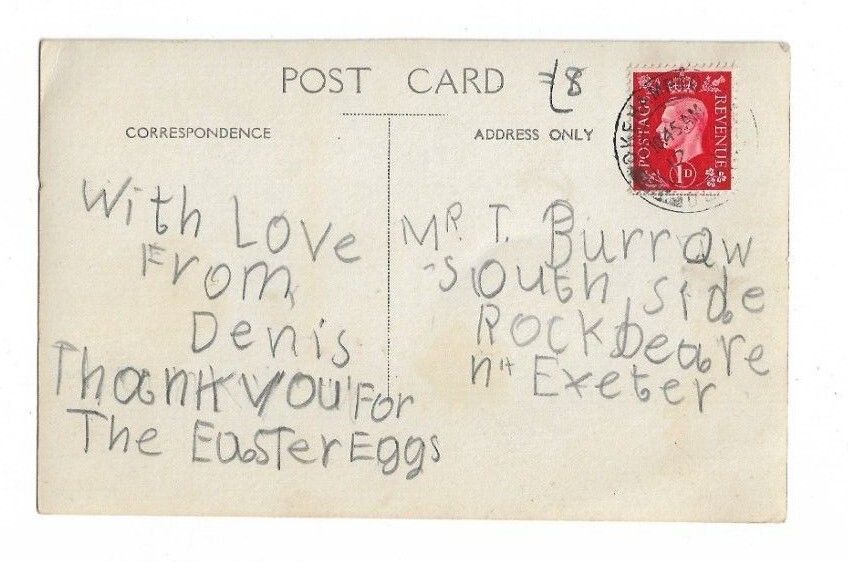 POST CARD
£8
CORRESPONDENCE
ADDRESS ONLY
POSTAGE
REVENUE
1D
OKEHAMPTON
45 AM
With Love
From
Denis
Thank you For
The Easter Eggs
Mr. T. Burraw
South side
Rockbeare
nr Exeter